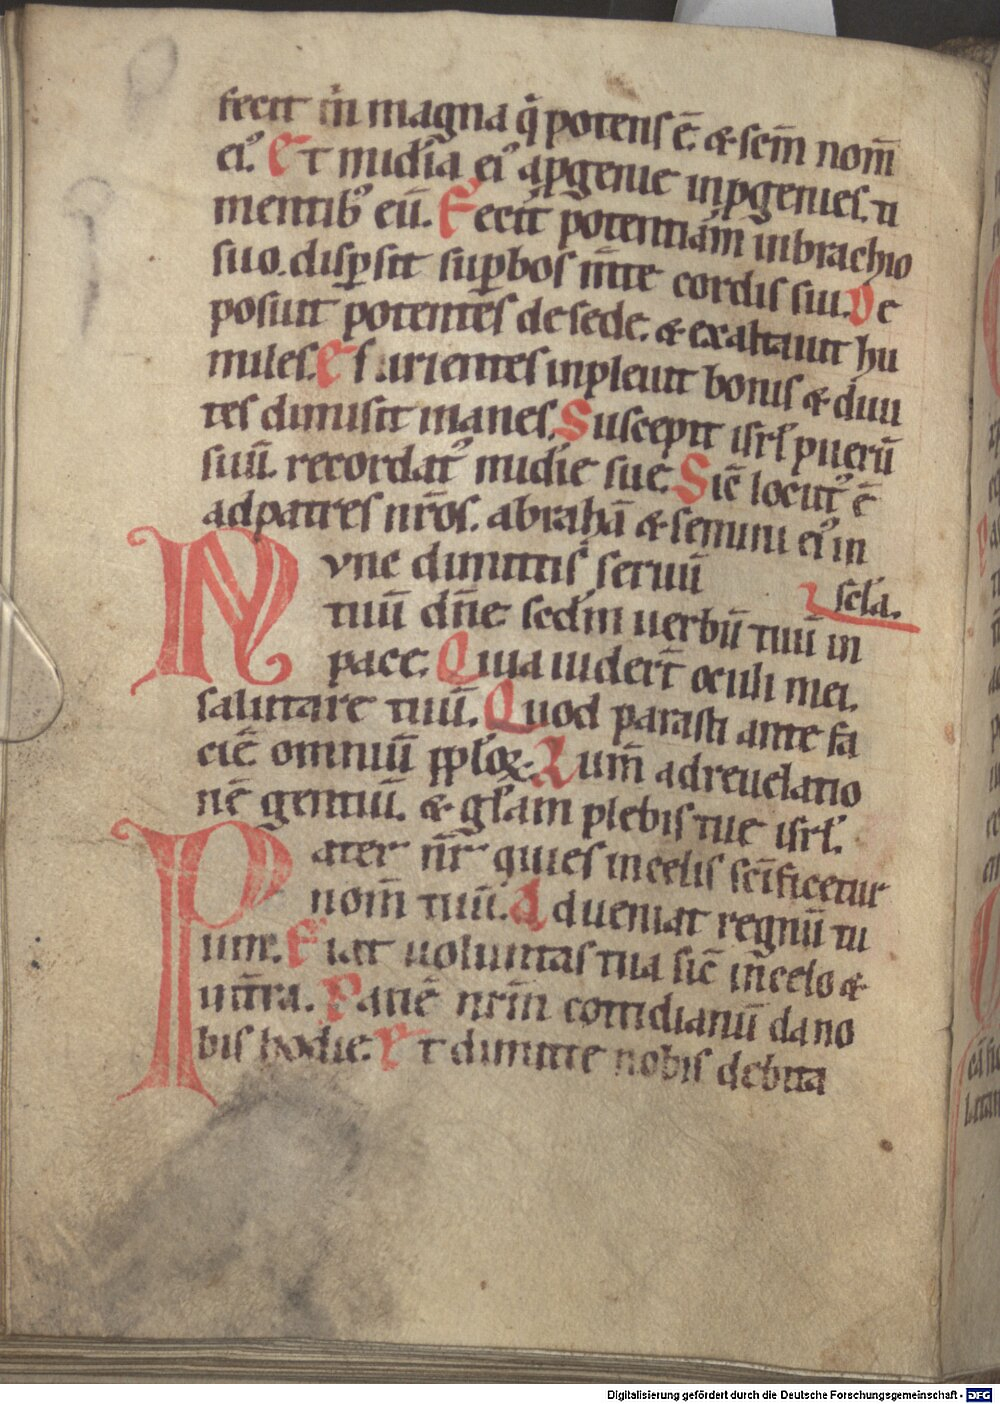 fecit m̄ magna q̇ potens ē. & scm̄ nom̄
eiꝰ. Et miẜdia eiꝰ a ꝓgenie in ꝓgenies. ti
mentibꝰ eū. Fecit potentiam in brachio
suo. disꝑsit suꝑbos m̄te cordis sui. De
posuit potentes de sede. & exaltauit hu
miles. Esurientes inpleuit bonis & diui
tes dimisit inanes. Suscepit isrl̄ puerū
suū. recordatꝰ miẜdie sue. Sic̄ locutꝰ ē
ad patres nr̄os. abrahā & semini eiꝰ in
scl̄a.
Nvnc dimittis seruū
tuū dn̄e sedm̄ uerbū tuū in
pace. Quia uider̄t oculi mei.
salutare tuū. Quod parasti ante fa
ciē omniū ppl̄oꝝ. Lum̄ ad reuelatio
nē gentiū. & gl̄am plebis tue isrl̄.
Pater nr̄ qui es in celis sc̄ificetur
nom̄ tuū. Adueniat regnū tu
um. Fiat uoluntas tua sic̄ in celo &
in t̄ra. Panē nr̄m cottidianū da no
bis hodie. Et dimitte nobis debita
Digitalisierung gefördert durch die Deutsche Forschungsgemeinschaft - DFG